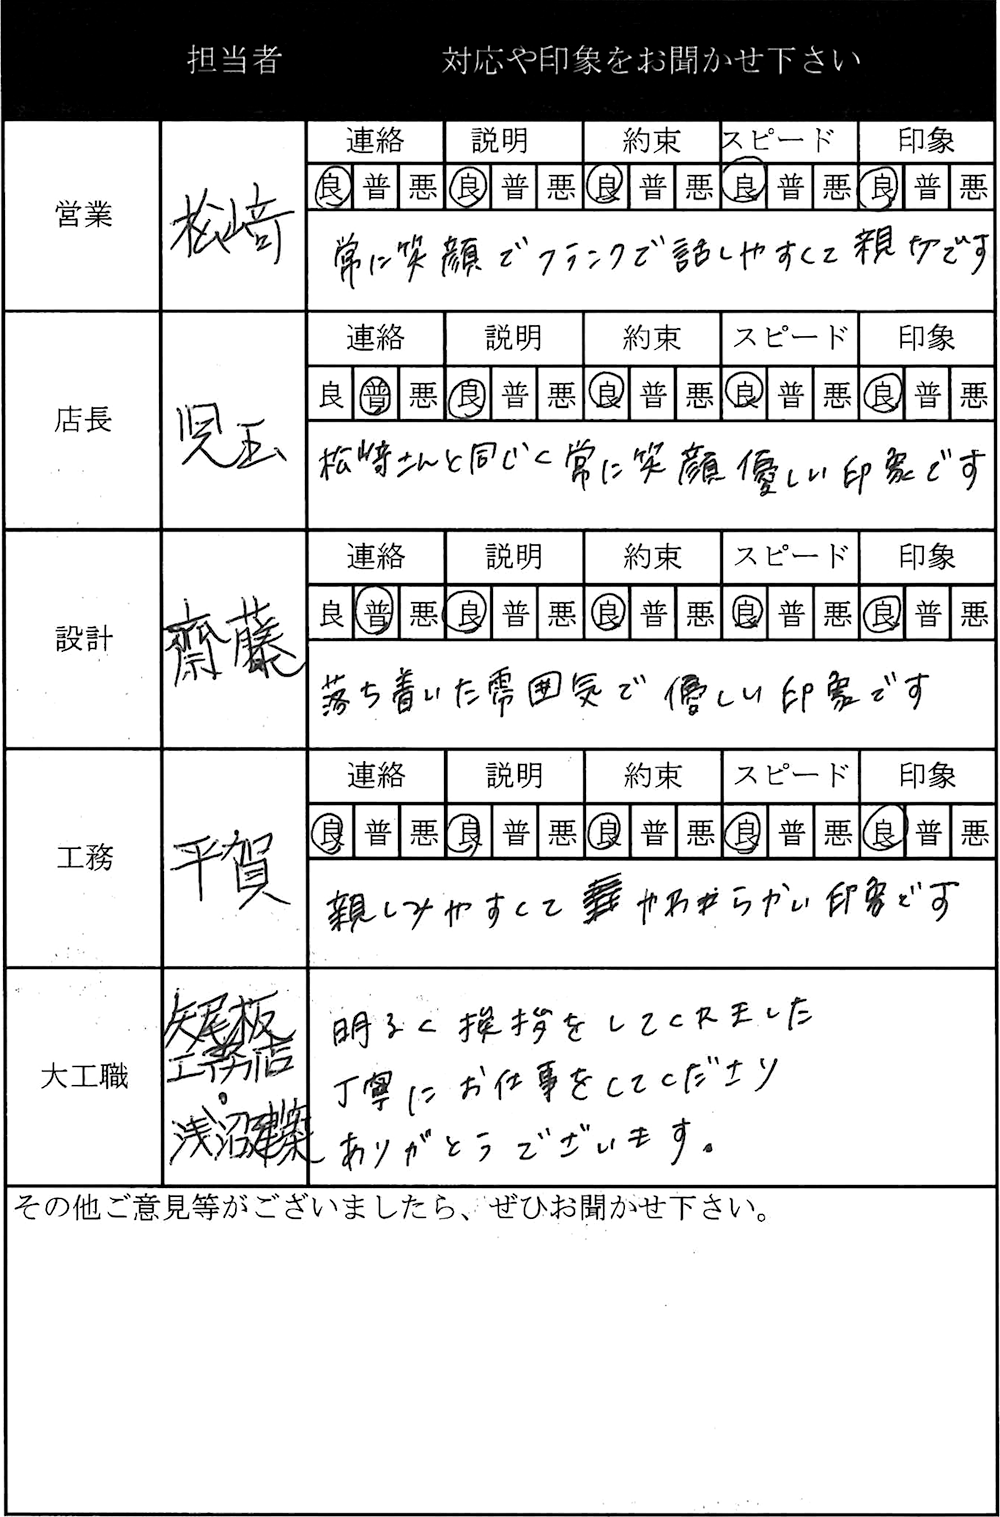 担当者 対応や印象をお聞かせ下さい
営業 松﨑 連絡 説明 約束 スピード 印象
良 普 悪 良 普 悪 良 普 悪 良 普 悪 良 普 悪
常に笑顔でフランクで話しやすくて親切です
店長 児玉 連絡 説明 約束 スピード 印象
良 普 悪 良 普 悪 良 普 悪 良 普 悪 良 普 悪
松﨑さんと同じく常に笑顔優しい印象です
設計 齋藤 連絡 説明 約束 スピード 印象
良 普 悪 良 普 悪 良 普 悪 良 普 悪 良 普 悪
落ち着いた雰囲気で優しい印象です
工務 平賀 連絡 説明 約束 スピード 印象
良 普 悪 良 普 悪 良 普 悪 良 普 悪 良 普 悪
親しみやすくてやわらかい印象です
大工職
矢尾板
工務店
・
浅沼建築
明るく挨拶をしてくれました
丁寧にお仕事をしてくださり
ありがとうございます。
その他ご意見等がございましたら、ぜひお聞かせ下さい。